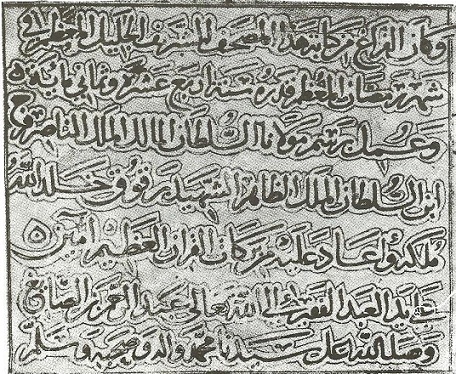 وكان الفراغ من كتابة هذا المصحف الشريف الجليل المعظم في
شهر رمضان المعظم قدره سنة اربع عشر وثماني ماية
وعمل برسم مولانا السلطان المالك الملك الناصر فرج
ابن السلطان الملك الظاهر الشهيد برقوق خلد الله
ملكه واعاد عليه من بركات القران العظيم امين
على يد العبد الفقير الى الله تعالى عبد الرحمن الصائغ
وصلى الله على سيدنا محمد واله وصحبه وسلم